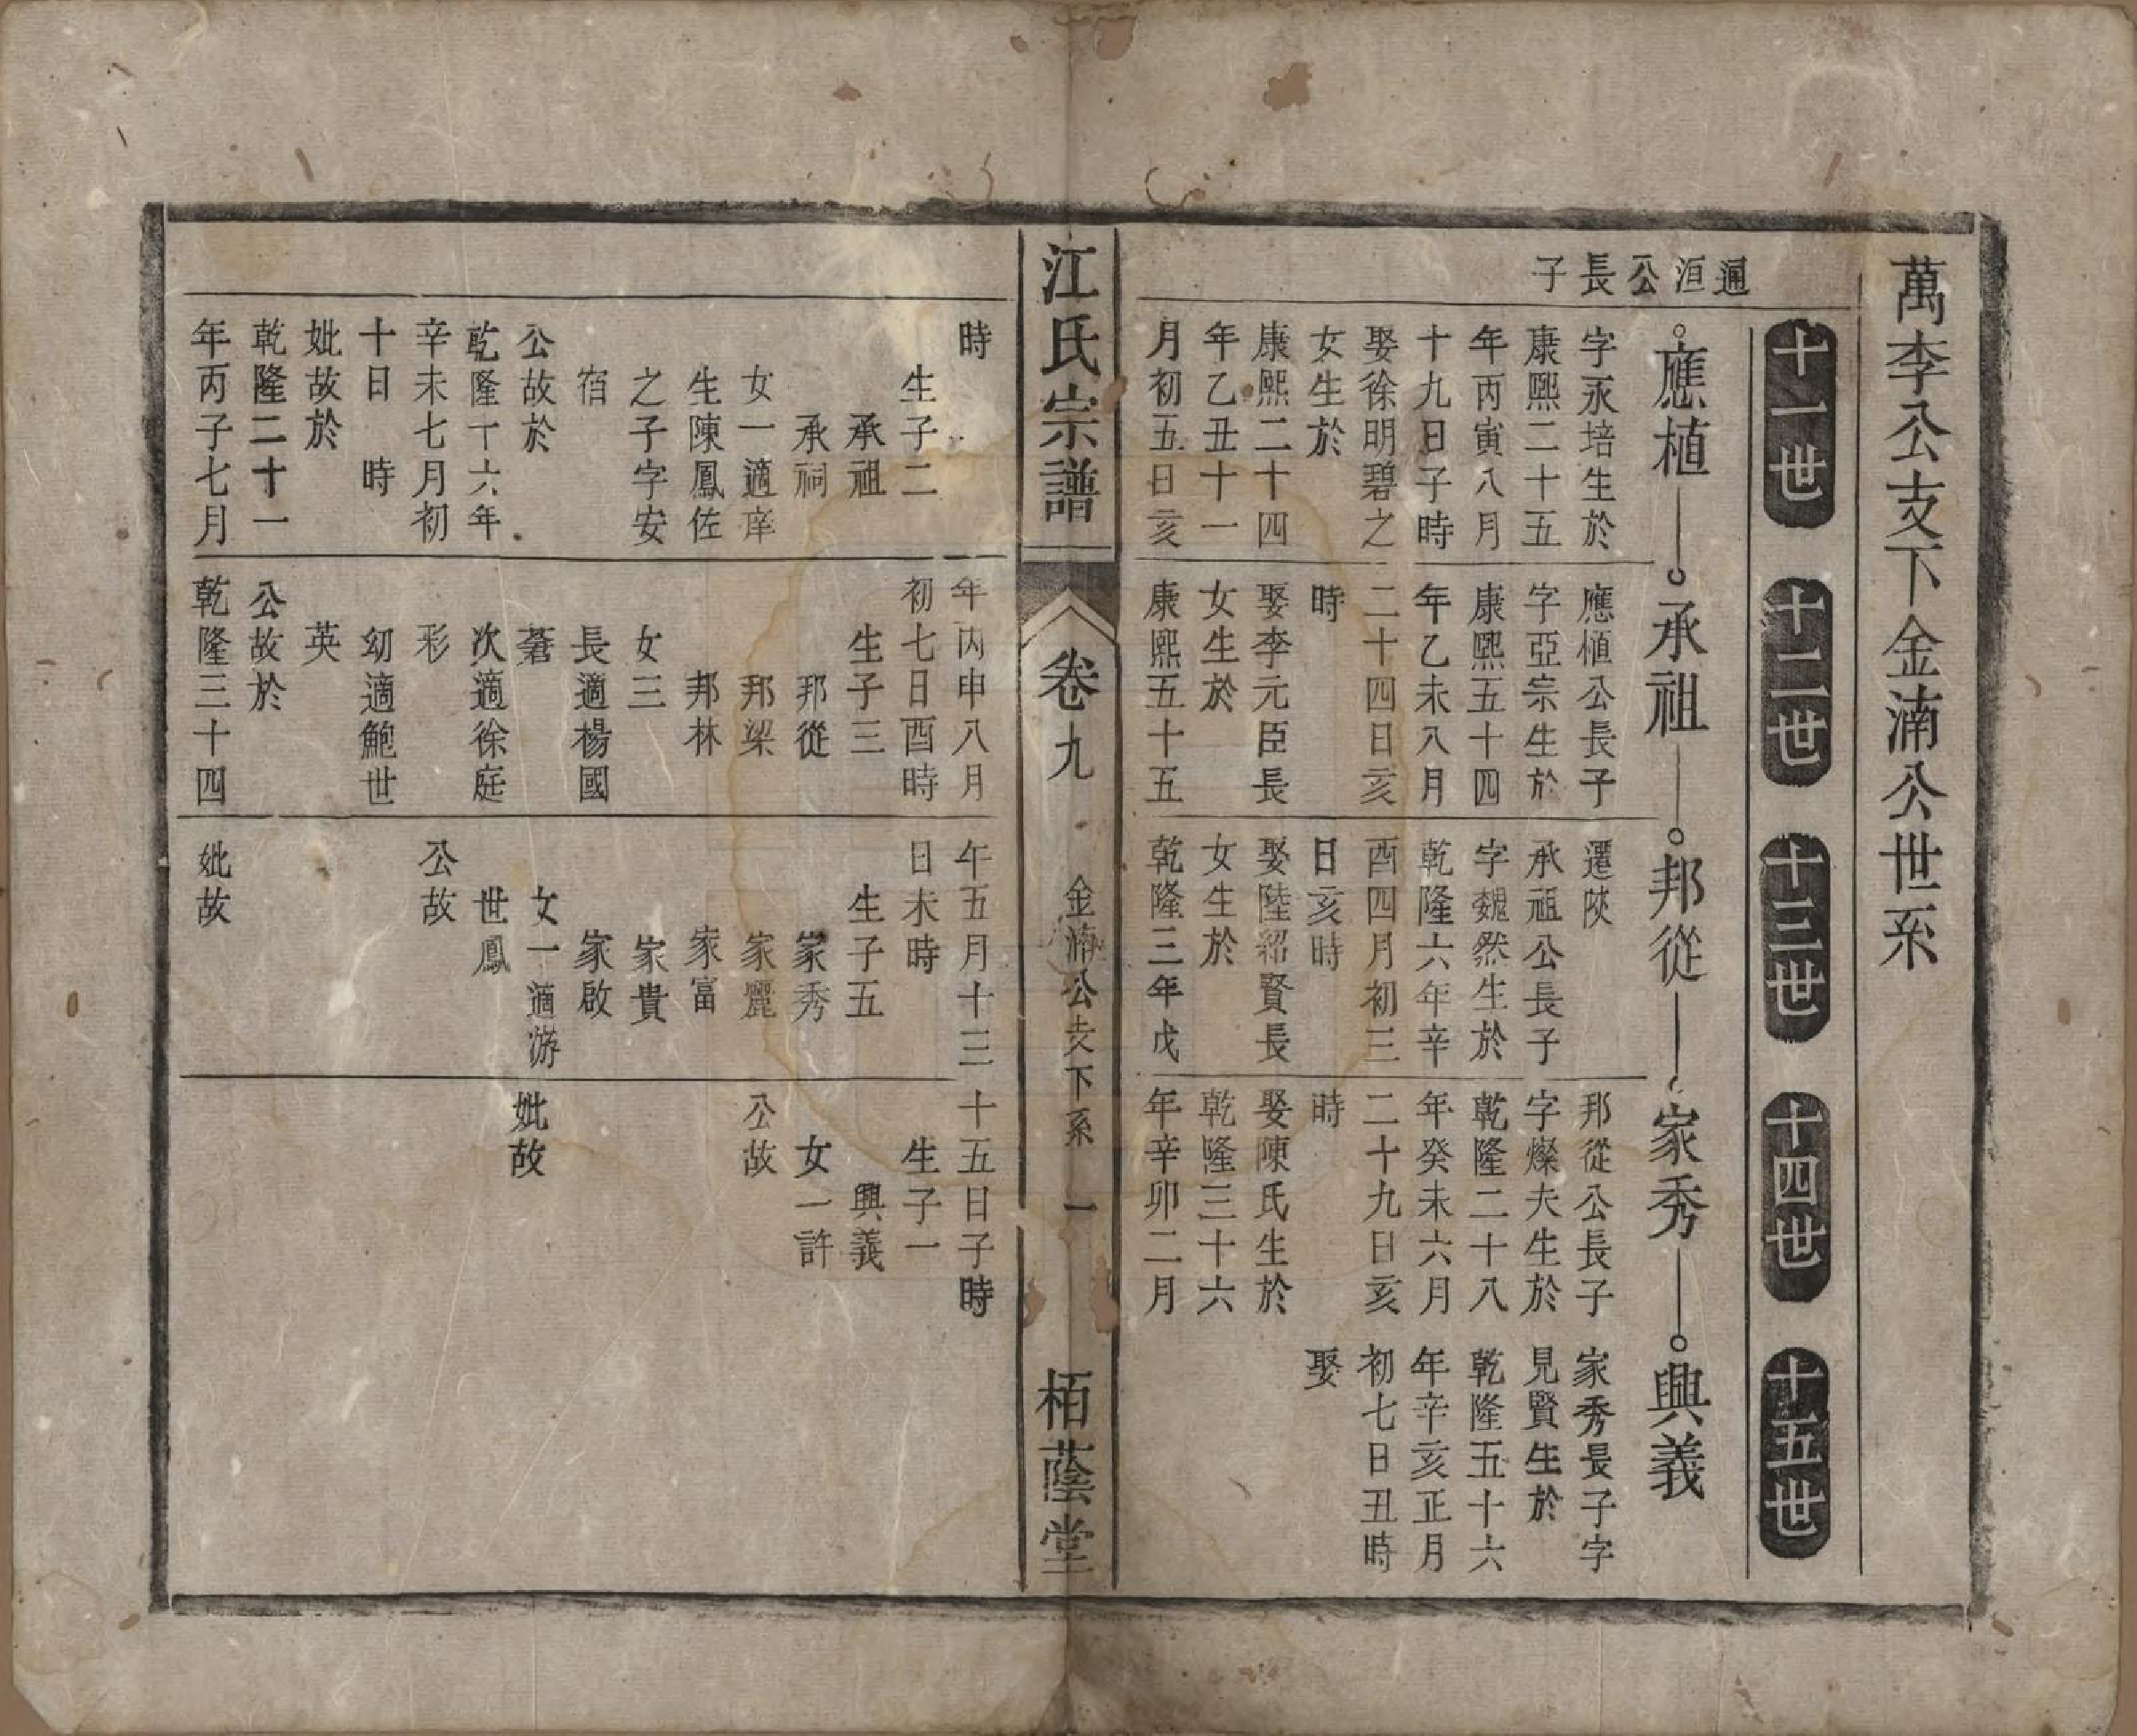 萬李公支下金湳公世系
十一世
十二世
十三世
十四世
十五世
逥洹公長子
應植
承祖
邦從
家秀
興義
字永培生於
康熙二十五
年丙寅八月
十九日子時
娶徐明碧之
女生於
康熙二十四
年乙丑十一
月初五日亥
應植公長子
字亞宗生於
康熙五十四
年乙未八月
二十四日亥
時
娶李元臣長
女生於
康熙五十五
遷陝
承祖公長子
字魏然生於
乾隆六年辛
酉四月初三
日亥時
娶陸紹賢長
女生於
乾隆三年戊
邦從公長子
字燦夫生於
乾隆二十八
年癸未六月
二十九日亥
時
娶陳氏生於
乾隆三十六
年辛卯二月
家秀長子字
見賢生於
乾隆五十六
年辛亥正月
初七日丑時
娶
江氏宗譜
卷九
金湳公支下系
一
栢蔭堂
時
生子二
承祖
承祠
女一適庠
生陳鳳佐
之子字安
宿
公故於
乾隆十六年
辛未七月初
十日　時
妣故於
乾隆二十一
年丙子七月
年丙申八月
初七日酉時
生子三
邦從
邦梁
邦林
女三
長適楊國
蒼
次適徐庭
彩
幼適鮑世
英
公故於
乾隆三十四
午五月十三
日未時
生子五
家秀
家麗
家富
家貴
家啟
女一適游
世鳳
公故
妣故
十五日子時
生子一
興義
女一許
公故
妣故